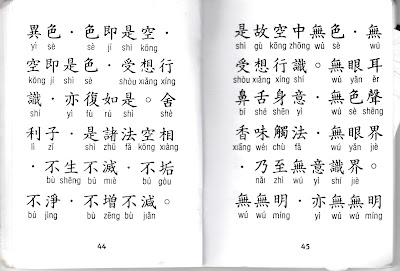 異色·色即是空·
yì sè sè jí shì kōng
空即是色·受想行
kōng jí shì sè shòu xiǎng xíng
識·亦復如是。舍
shì yì fù rú shì shè
利子·是諸法空相
lì zǐ shì zhū fǎ kōng xiàng
·不生不滅·不垢
bù shēng bù miè bù gòu
不淨·不增不減。
bù jìng bù zēng bù jiǎn
44
是故空中無色·無
shì gù kōng zhōng wú sè wú
受想行識。無眼耳
shòu xiǎng xíng shì wú yǎn ěr
鼻舌身意·無色聲
bí shé shēn yì wú sè shēng
香味觸法·無眼界
xiāng wèi chù fǎ wú yǎn jiè
·乃至無意識界。
nǎi zhì wú yì shí jiè
無無明·亦無無明
wú wú míng yì wú wú míng
45